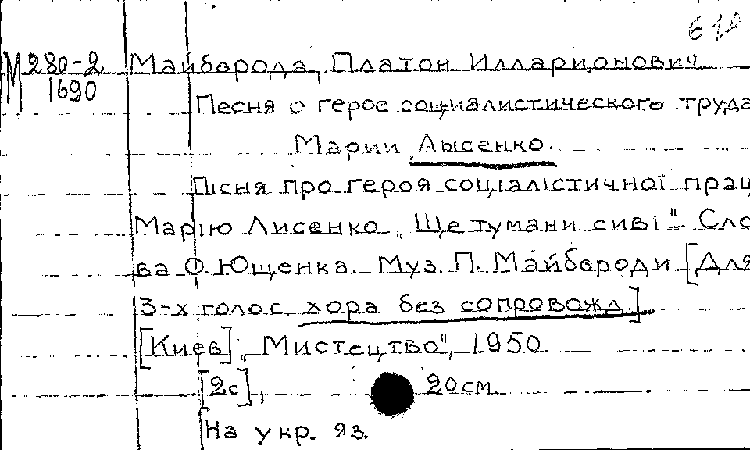 М 280-2
1690
Майборода, Платон Илларионович
Песня о герое социалистического труда
Марии Лысенко.
Пісня про героя соціалістичної прац
Марію Лисенко „Ще тумани сиві". Сло
ва Ф. Ющенка. Муз. П. Майбороди [Для
3-х голос. хора без сопровожд]
[Киев], „Мистецтво", 1950
[2с], 20см.
На укр. яз.